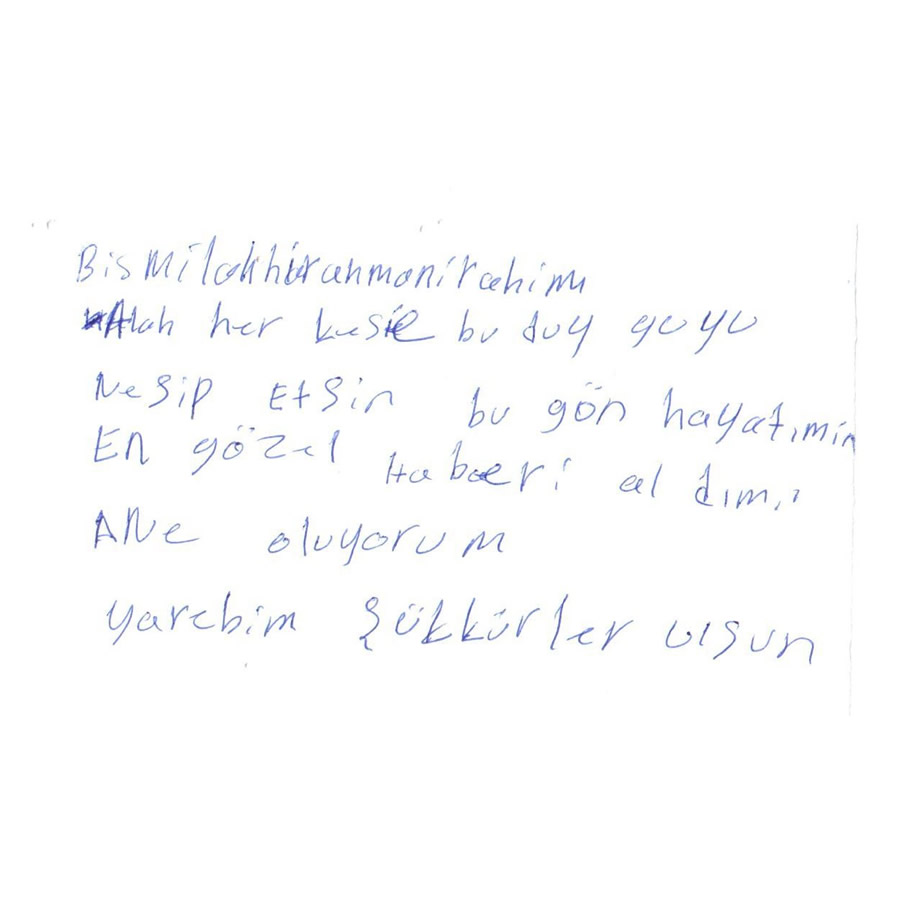 Bismilahhirahmanirahim
Alah her kesie bu duy guyu
Nesip Etsin bu gön hayatımin
En gözel Haberi al dım
ANe oluyorum
yarebim Şükkürler olsun